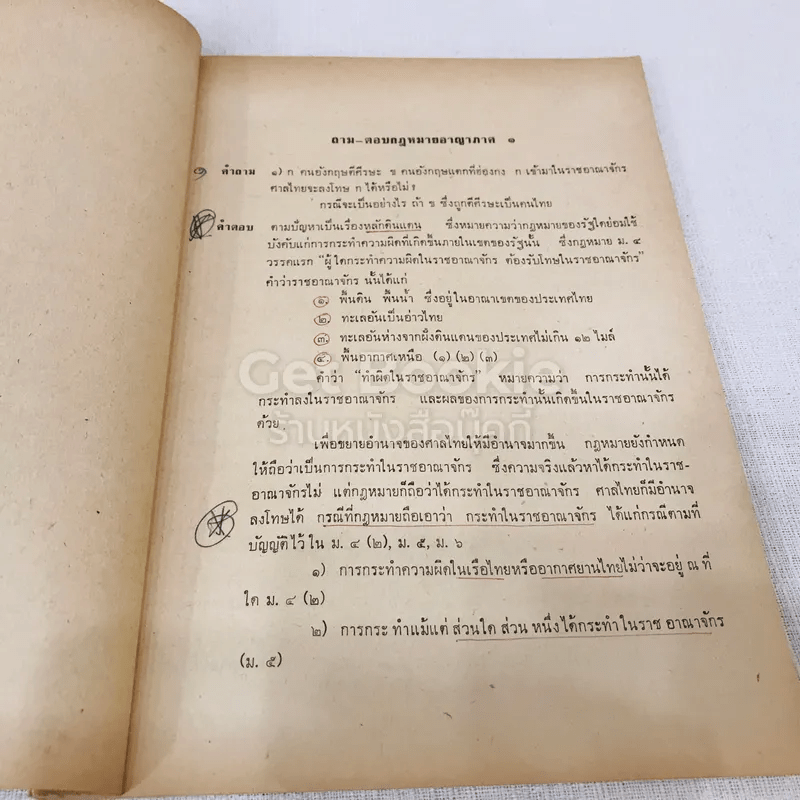 ถาม-ตอบกฎหมายอาญาภาค ๑
๑ คำถาม ๑) ก คนอังกฤษตีศีรษะ ข คนอังกฤษแตกที่ฮ่องกง ก เข้ามาในราชอาณาจักร
ศาลไทยจะลงโทษ ก ได้หรือไม่?
กรณีจะเป็นอย่างไร ถ้า ข ซึ่งถูกตีศีรษะเป็นคนไทย
คำตอบ ตามปัญหาเป็นเรื่องหลักดินแดน ซึ่งหมายความว่ากฎหมายของรัฐใดย่อมใช้
บังคับแก่การกระทำความผิดที่เกิดขึ้นภายในเขตของรัฐนั้น ซึ่งกฎหมาย ม. ๔
วรรคแรก "ผู้ใดกระทำความผิดในราชอาณาจักร ต้องรับโทษในราชอาณาจักร"
คำว่าราชอาณาจักร นั้นได้แก่
๑. พื้นดิน พื้นน้ำ ซึ่งอยู่ในอาณาเขตของประเทศไทย
๒. ทะเลอันเป็นอ่าวไทย
๓. ทะเลอันห่างจากฝั่งดินแดนของประเทศไม่เกิน ๑๒ ไมล์
๔. พื้นอากาศเหนือ (๑) (๒) (๓)
คำว่า "ทำผิดในราชอาณาจักร" หมายความว่า การกระทำนั้นได้
กระทำลงในราชอาณาจักร และผลของการกระทำนั้นเกิดขึ้นในราชอาณาจักร
ด้วย
Get Bookie
ร้านหนังสือบุ๊คกี้
เพื่อขยายอำนาจของศาลไทยให้มีอำนาจมากขึ้น กฎหมายยังกำหนด
ให้ถือว่าเป็นการกระทำในราชอาณาจักร ซึ่งความจริงแล้วหาได้กระทำในราช-
อาณาจักรไม่ แต่กฎหมายก็ถือว่าได้กระทำในราชอาณาจักร ศาลไทยก็มีอำนาจ
ลงโทษได้ กรณีที่กฎหมายถือเอาว่า กระทำในราชอาณาจักร ได้แก่กรณีตามที่
บัญญัติไว้ ใน ม. ๔ (๒), ม. ๕, ม. ๖
๑) การกระทำความผิดในเรือไทยหรืออากาศยานไทยไม่ว่าจะอยู่ ณ ที่
ใด ม. ๔ (๒)
๒) การกระ ทำแม้แต่ ส่วนใด ส่วน หนึ่งได้กระทำในราช อาณาจักร
(ม. ๕)